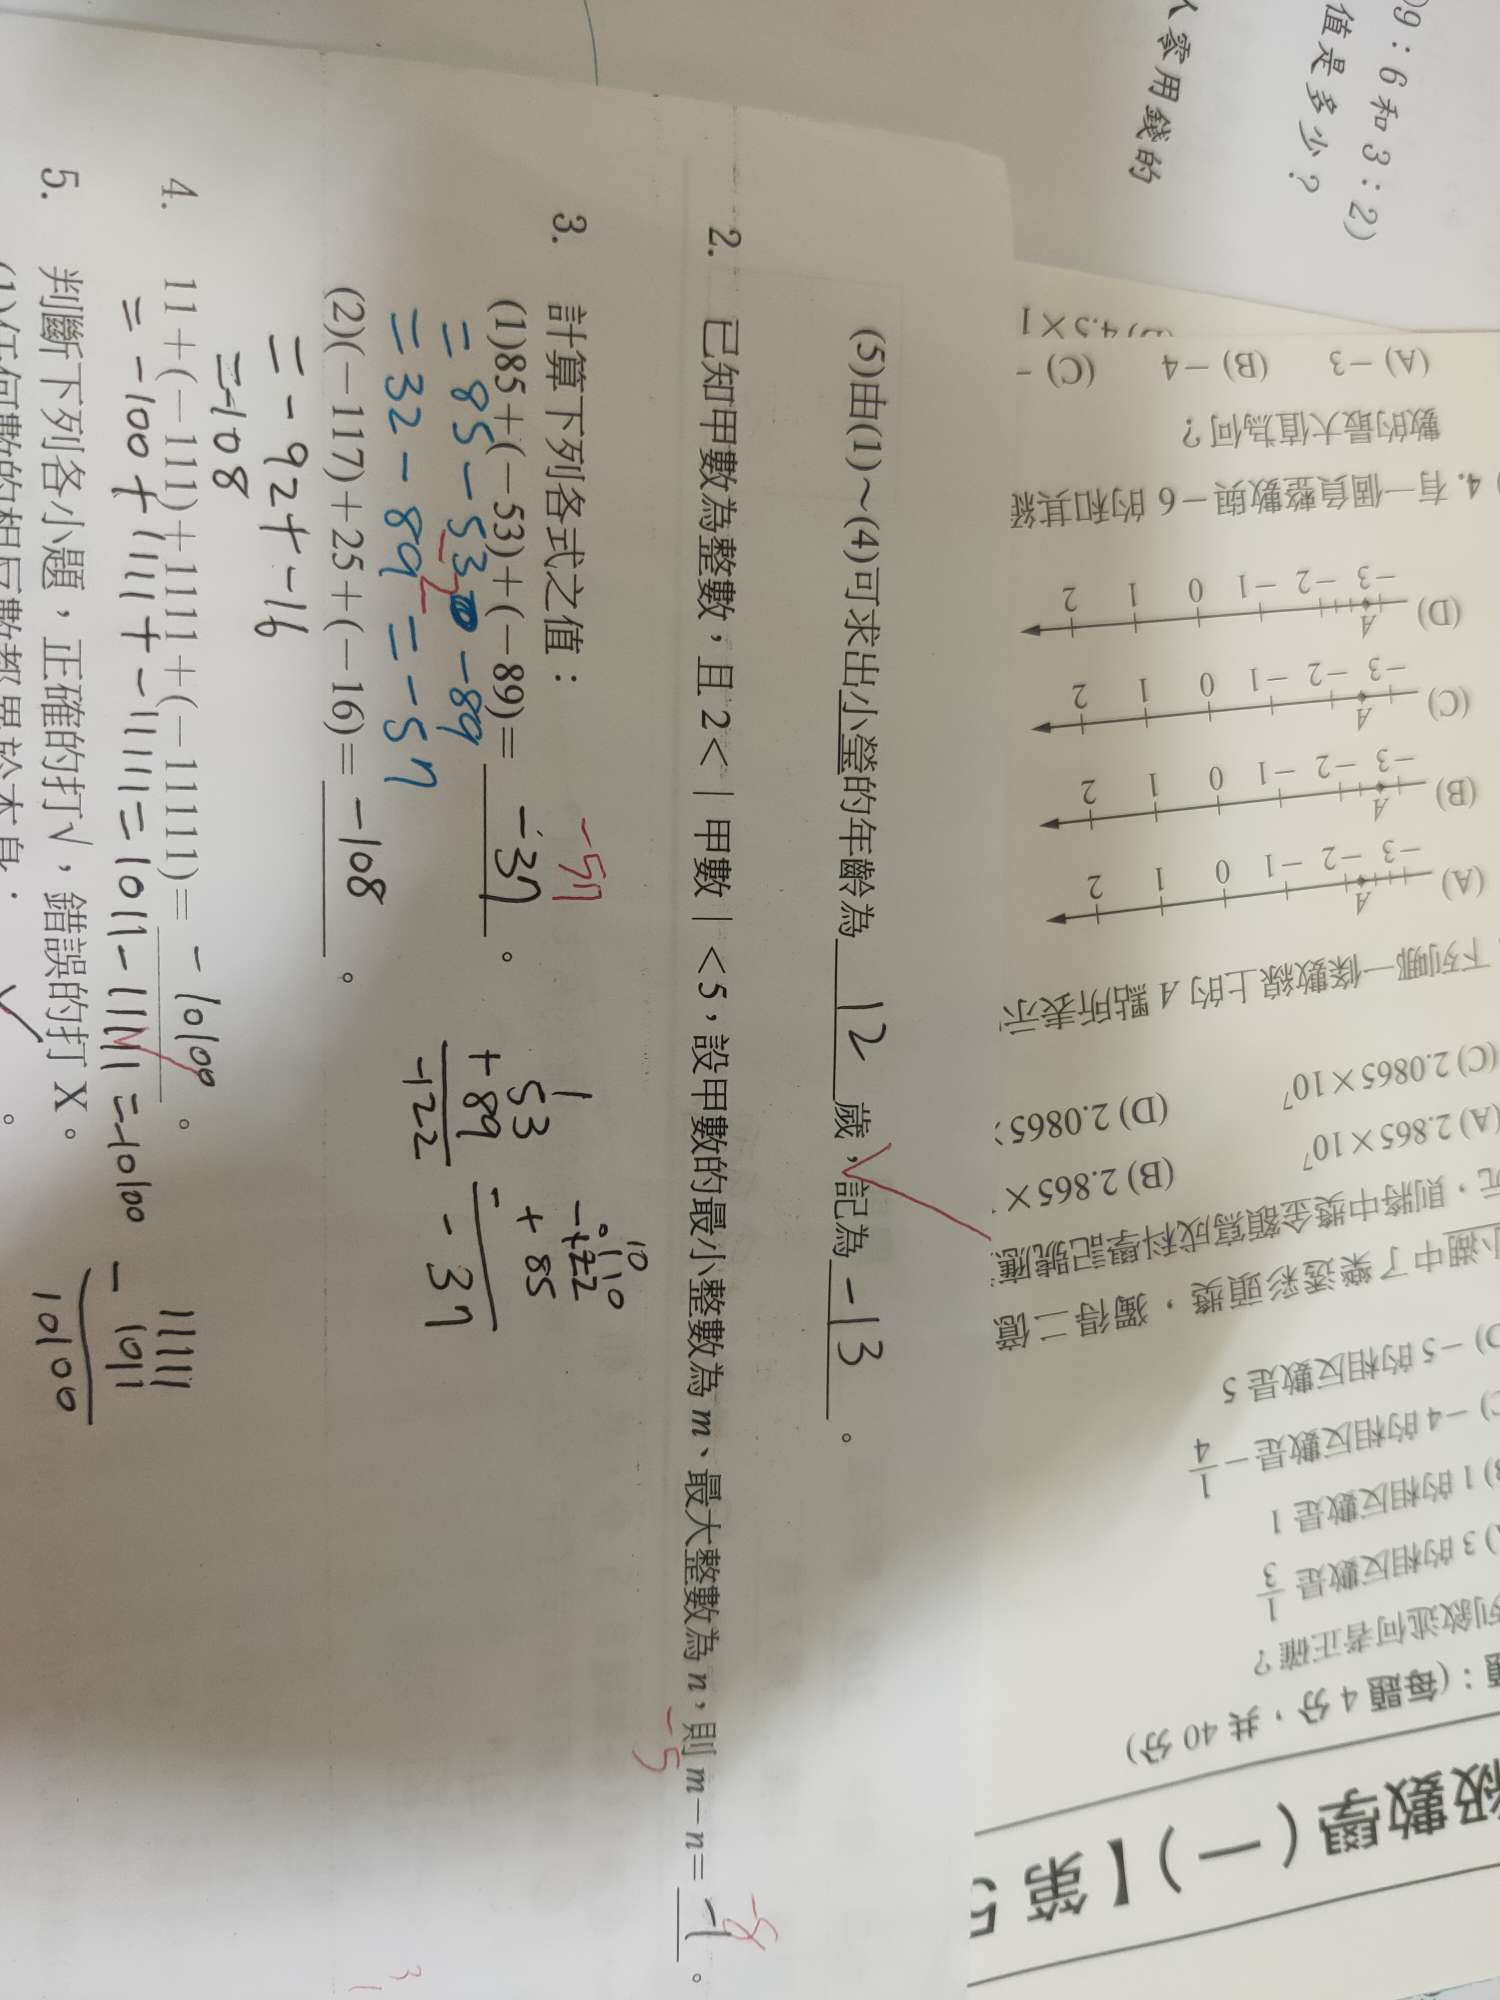 (5)由(1)～(4)可求出小瑩的年齡為 12 歲，記為 -13 。
2. 已知甲數為整數，且 2<｜甲數｜<5，設甲數的最小整數為 m、最大整數為 n，則 m－n＝ -1 。
-5
-8
3. 計算下列各式之值：
(1)85＋(－53)＋(－89)＝ -37 。
-57
= 85 - 53 -89
= 32 - 89 = -57
1
53
+ 89
-122
10
0 1 10
-122
+ 85
- 37
(2)(－117)＋25＋(－16)＝ -108 。
= -92 + -16
= -108
4. 11＋(－111)＋1111＋(－11111)＝ -10100 。
= -100 + 1111 + -11111 = 1011 - 11111 = -10100
11111
- 1011
10100
5. 判斷下列各小題，正確的打√，錯誤的打 X。
(1)任何數的相反數都異於本身：
級數學(一)】【第 5
題：(每題 4 分，共 40 分)
列敘述何者正確？
) 3 的相反數是 1/3
B) 1 的相反數是 1
C) －4 的相反數是－1/4
D) －5 的相反數是 5
小湖中了樂透彩頭獎，獨得二億
元，則將中獎金額寫成科學記號應
(A) 2.865×10⁷ (B) 2.865×
(C) 2.0865×10⁷ (D) 2.0865×
下列哪一條數線上的 A 點所表示
(A) A －3 －2 －1 0 1 2
(B) A －3 －2 －1 0 1 2
(C) A －3 －2 －1 0 1 2
(D) A －3 －2 －1 0 1 2
4. 有一個負整數與－6 的和其絕
數的最大值為何？
(A) －3 (B) －4 (C) －
4.5×1
9：6 和 3：2)
值是多少？
零用錢的